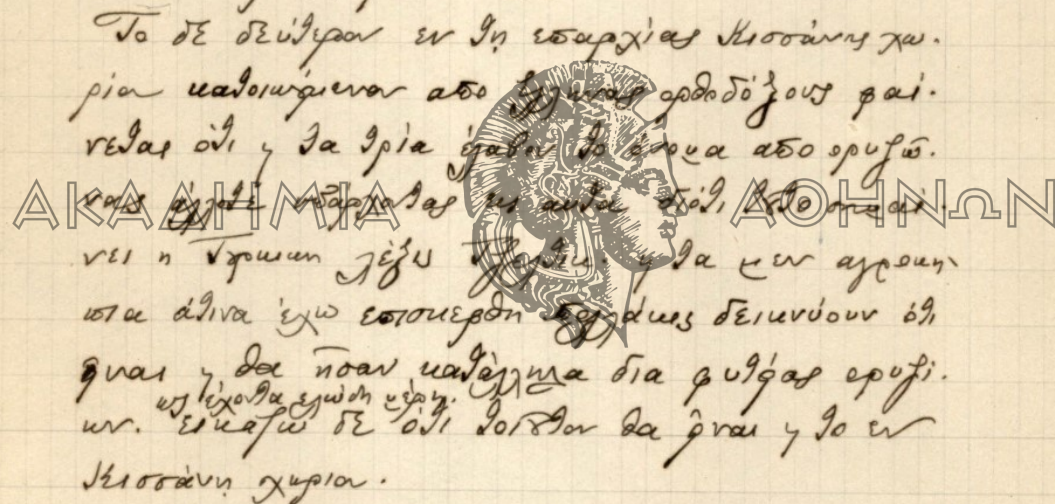 Το δε δεύτερον εν τη επαρχίας Κισσάνης χω-
ρίον κατοικούμενον απο Έλληνας ορθοδόξους φαί-
νεται ότι ϗ τα τρία έλαβον το όνομα απο ορυζώ-
νας άλλοτε υπάρχοντας εις αυτά διότι τούτο σημαί-
νει η Τουρκικη λέξις ϗ τα μεν αγροκή-
πια άτινα έχω επισκεφθη πολλάκις δεικνύουν ότι
είναι ϗ θα ήσαν κατάλληλα δια φυτείας ορυζί-
ως έχοντα ελώδη μέρη.
ων. εικάζω δε ότι τοιούτον θα είναι ϗ το εν
Κισσάνη χωρίον.
ΑΚΑΔΗΜΙΑ ΑΘΗΝΩΝ